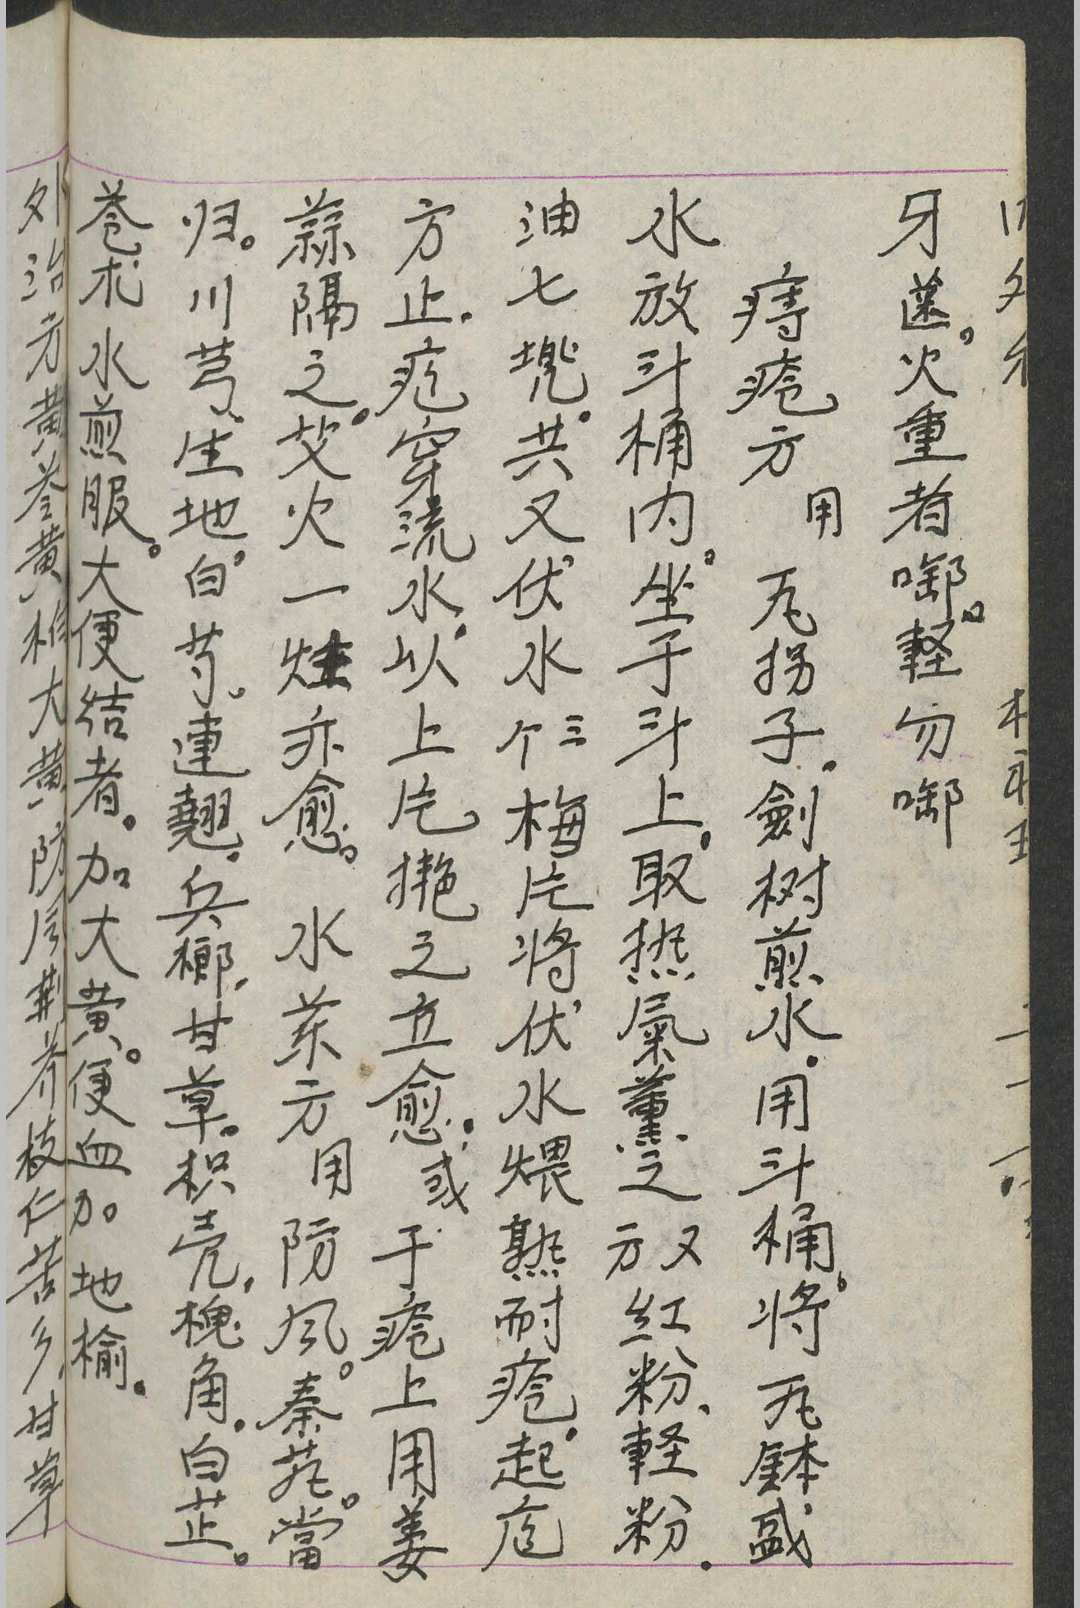 牙齒。火重者啣。軽勿啣
痔疮方 用 瓦拐子。劍树煎水。用斗桶。将瓦缽盛
水放斗桶内。坐于斗上。取热氣薰之 又方 红粉、軽粉.
油七兠。共又伏水三个梅片将伏水煨熟耐疮。起疙
方止.疙穿流水。以上片擦之立愈。或于疮上用姜
蒜隔之。艾火一炷亦愈。 水药方 用 防风。秦艽。當
归。川芎。生地。白芍。連翘.兵榔.甘草。枳壳.槐角.白芷。
苍术水煎服。大便结者。加大黄。便血加地榆.
外治方黄苓黄柏大黄防风荆芥枝仁苦参甘草